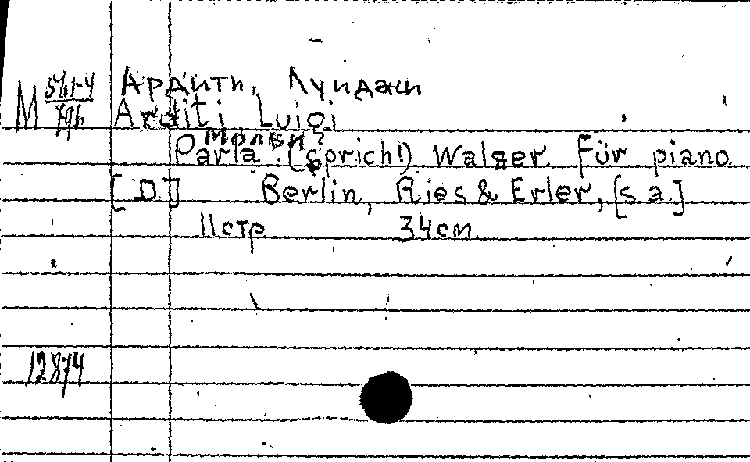 Ардити, Луиджи
М 561-4/796 Arditi Luigi
Молви?
Parla (sprich!) Walzer. Für piano
[D.] Berlin, Ries & Erler, [s.a.]
11 стр 34 см
12874